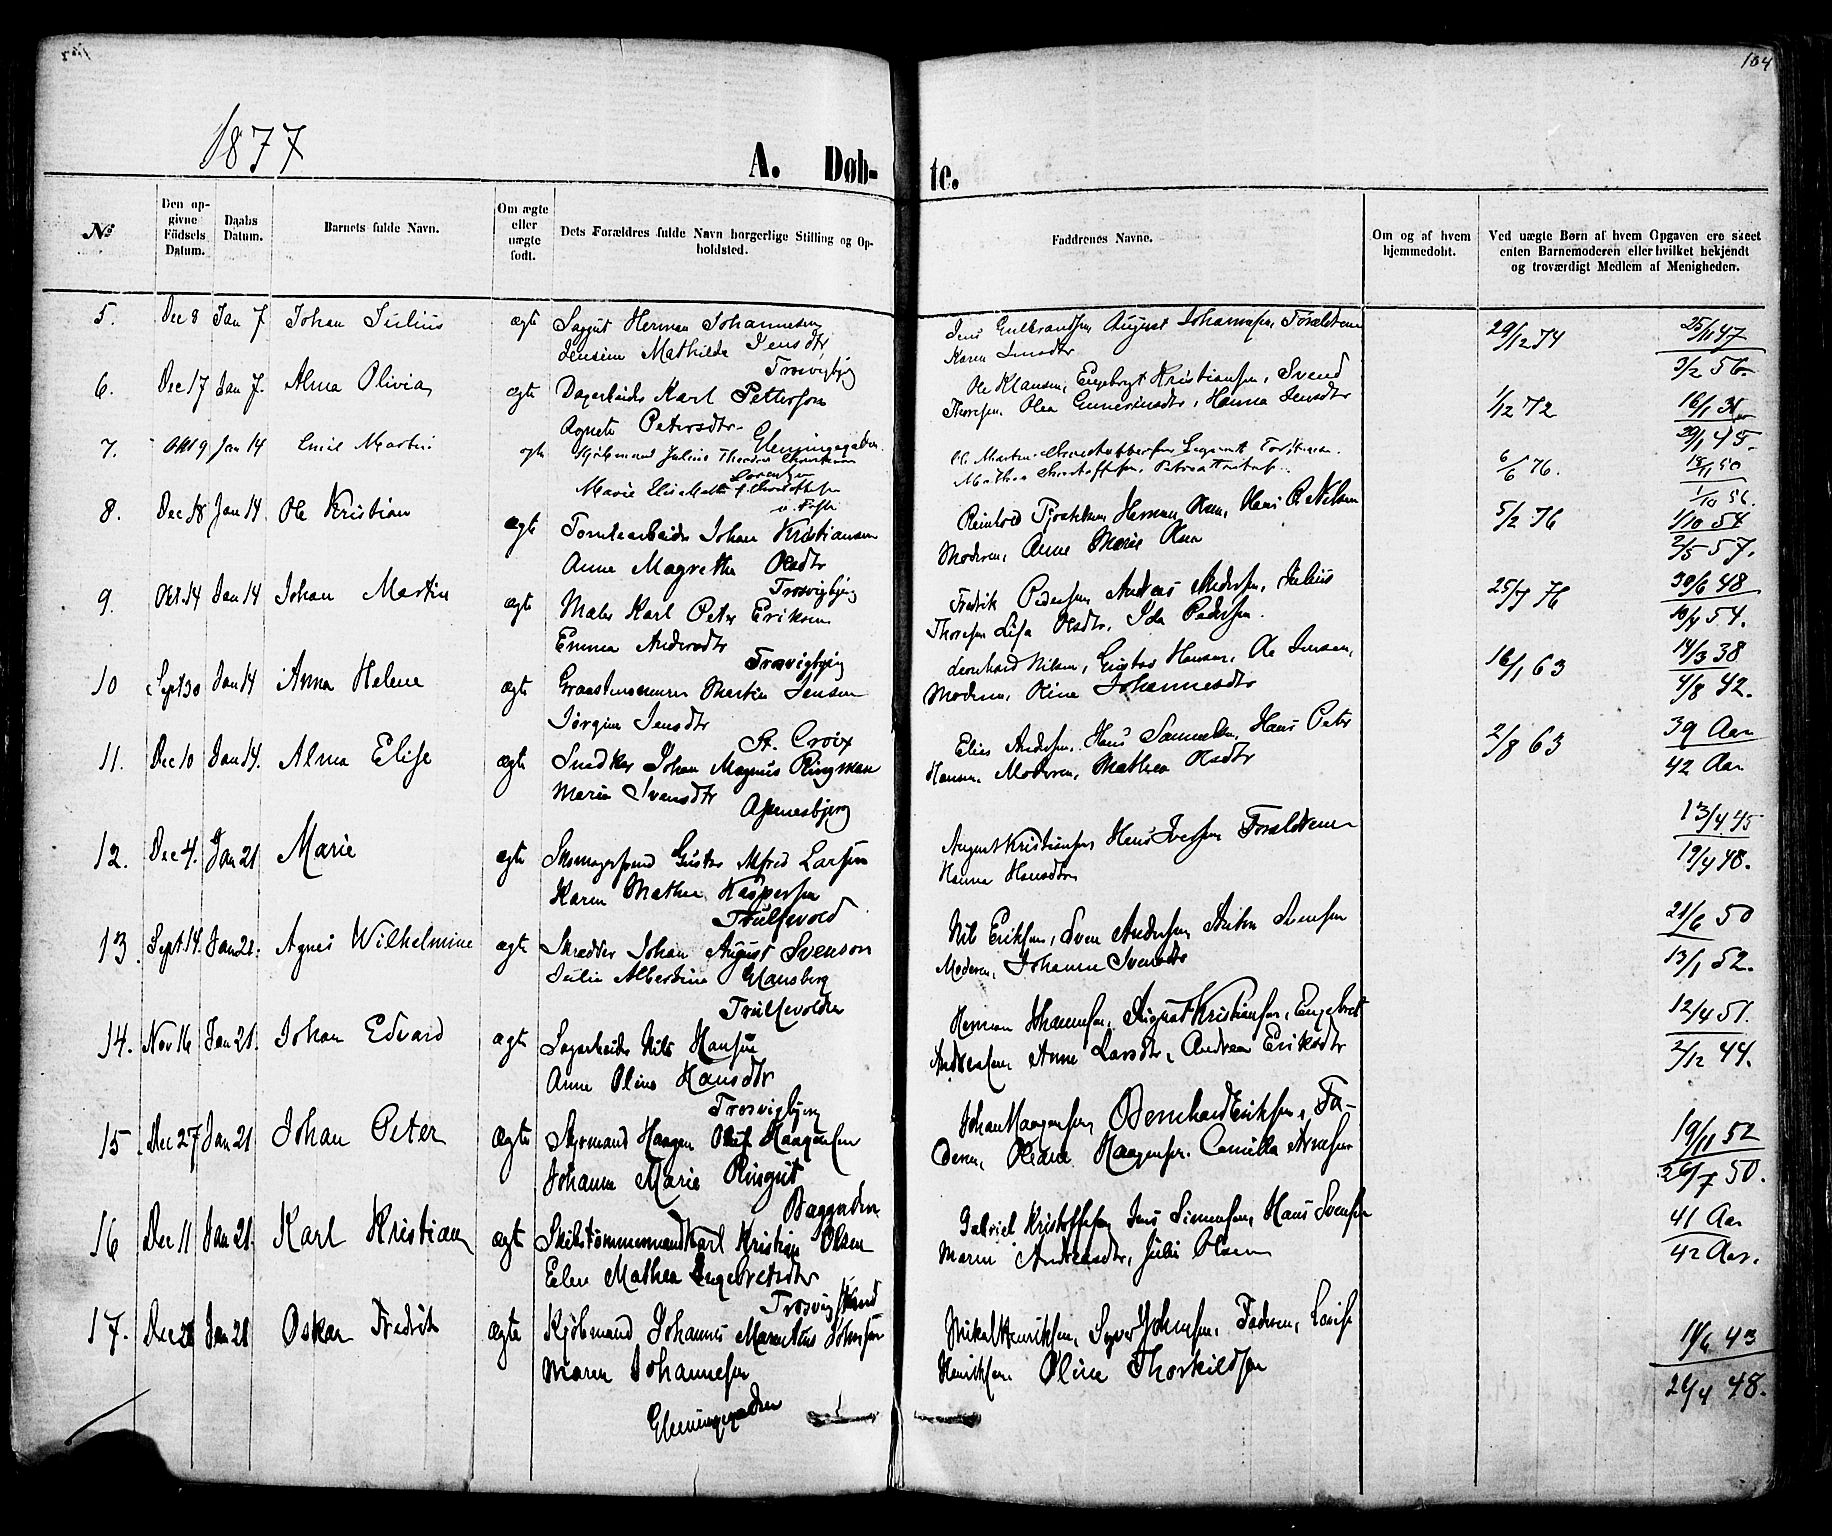 104
1877
A. Døb- te.
No
Den opgivne Födsels Datum.
Daabs Datum.
Barnets fulde Navn.
Om ægte eller uægte født.
Dets Forældres fulde Navn borgerlige Stilling og Opholdsted.
Faddrenes Navne.
Om og af hvem hjemmedøbt.
Ved uægte Børn af hvem Opgaven ere skeet enten Barnemoderen eller hvilket bekjendt og troværdigt Medlem af Menigheden.
5. Dec 8 Jan 7. Johan Julius ægte Herman Johannesen August Johannesen Forældrene 29/12 74 25/11 47
Jensine Mathilde Jensdtr Karen Jensdtr
Trosvigbjerg 3/2 56.
6. Dec 17 Jan 7. Alma Olivia ægte Dagarbeider Karl Petterson Ole Klausen, Engebregt Kristiansen, Svend 1/12 72
Agnete Petersdtr. Thoresen, Olea Gunerinsdtr, Hanna Jensdtr
Glemmingegaden 29/1 45.
7. Okt 9 Jan 14 Emil Martin ægte Kjøbmand Julius Theodor Christian 6/6 76. 18/11 50
Lorentzen
Marie Elis 1/10 56.
8. Dec 18 Jan 14. Ole Kristian ægte Tomtearbeider Johan Kristiansen Herman Olsen, Hans O. Nilsen 5/2 76 1/10 54
Anne Magrethe Olsdtr Moderen, Anne Marie Olsen 2/5 57.
Trosvigbjerg
9. Okt. 14 Jan 14 Johan Martin ægte Maler Karl Peter Eriksen Fredrik Pedersen, Andreas Andersen, Julius 25/7 76 30/6 48
Emma Andersdtr Thoresen, Lisa Olsdtr, Ida Pedersen. 10/4 54.
Trosvigbjerg
10 Sept 30 Jan 14 Anna Helene ægte Graastensmurer Martin Jensen Leonhard Nilsen, Gustav Hansen, Ole Jensen, 16/1 63 14/3 38
Jørgine Jensdtr Moderen, Oline Johannesdtr 4/8 42.
St. Croix
11. Dec 10 Jan 14. Alma Elise ægte Snedker Johan Magnus Ringman Elias Andersen, Hans Samuelsen, Hans Peter 2/8 63 39 Aar
Maria Svensdtr Hansen, Moderen, Mathea Olsdtr 42 Aar
Apenesbjerg
12. Dec 4. Jan 21. Marie ægte Skomagersvend Gustav Alfred Larsen August Kristiansen, Forældrene 13/4 45
Karen Mathea Kaspersen Hanna Hansdtr 19/4 48.
Trulsevold
13. Sept 14. Jan 21. Agnes Wilhelmine ægte Skrædder Johan August Svenson Nils Eriksen, Sven Andersen, Anton Svensen 21/6 50
Julie Albertine Glansberg Moderen, Johanne Svensdtr 13/1 52.
Trulsevolden
14. Nov 16 Jan 21. Johan Edvard ægte Sagarbeider Nils Hansen Herman Johannesen, August Kristiansen, Engebret 12/4 51.
Anne Oline Hansdtr Andreasen, Anne Larsdtr, Andrea Eriksdtr 2/12 44.
Trosvigbjerg
15 Dec 27 Jan 21 Johan Peter ægte Styrmand Haagen Oluf Haagensen Johan Haagensen, Bernhard Eriksen, Fa- 19/11 52
Johanne Marie Ringqvist deren, Haagensen, Camilla Arnesen 29/7 50.
Baggaden
16 Dec 11 Jan 21. Karl Kristian ægte Skibstømmermand Karl Kristian Olsen Gabriel Kristoffersen, Jens Simensen, Hans Svensen 41 Aar
Elen Mathea Engebretsdtr Maren Andreasdtr, Julie Olsen 42 Aar.
Trosvigstrand
17. Dec 28 Jan 21 Oskar Fredrik ægte Kjøbmand Johannes Marentius Johnsen Mikal Henriksen, Syver Johnsen, Faderen, Lovise 18/6 43
Maren Johannesen Henriksen, Oline Thorkildsen 24/4 48.
Glemmingegaden